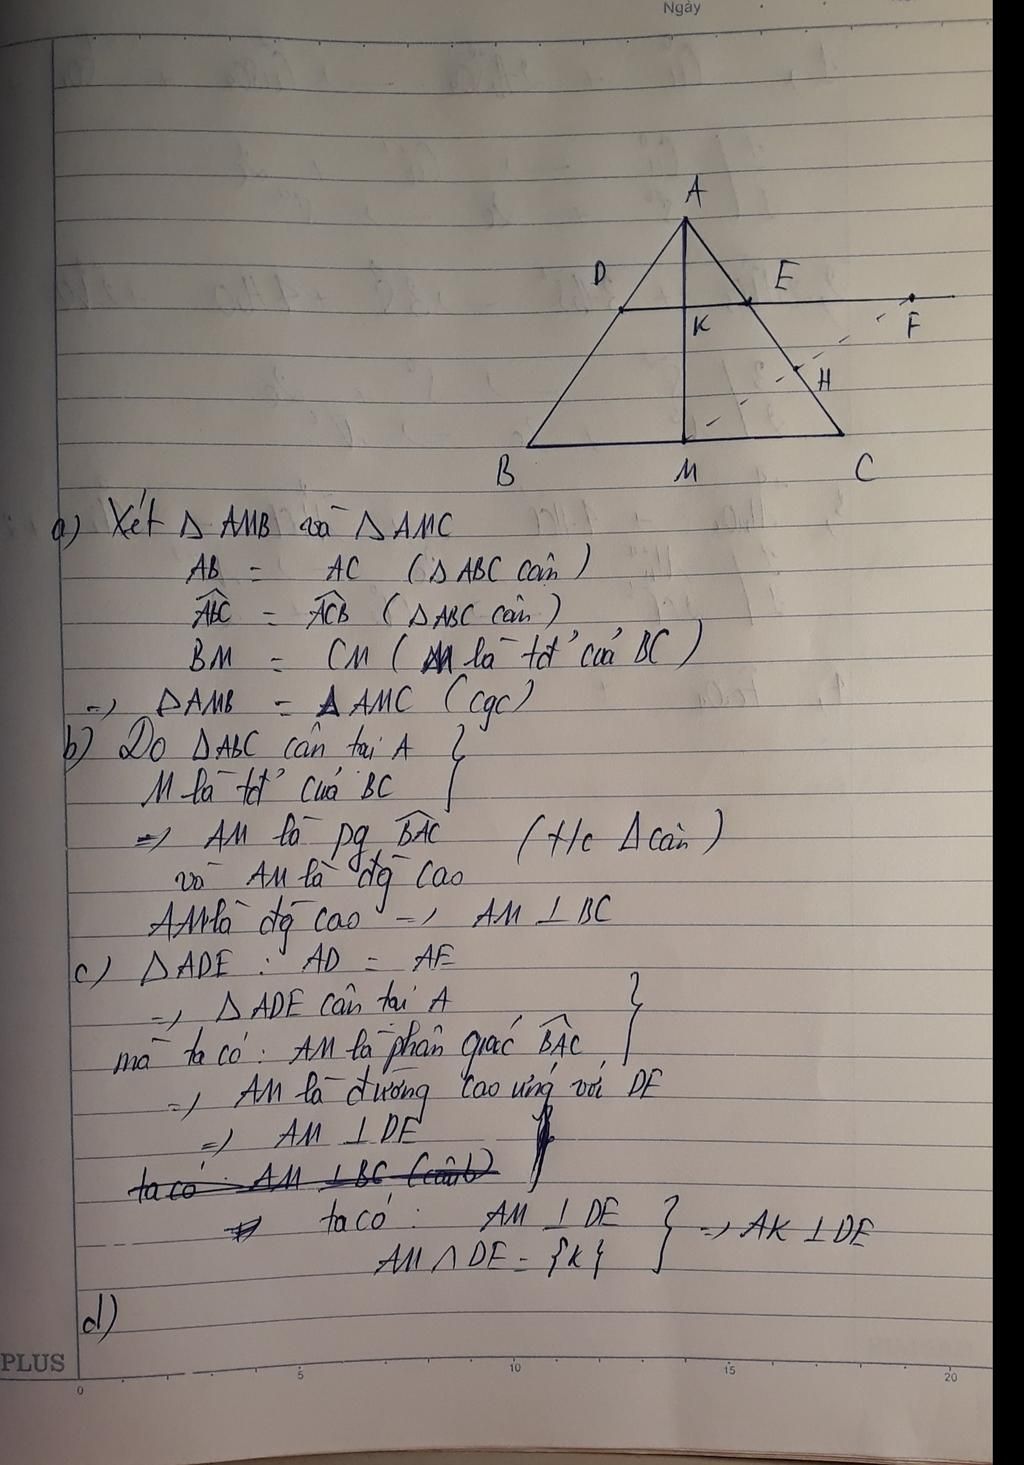 Ngày
A
D
E
K
F
H
B
M
C
a) Xét Δ AMB và Δ AMC
AB = AC (Δ ABC cân)
ABC = ACB (Δ ABC cân)
BM = CM (M là tđ' của BC)
=> ΔAMB = ΔAMC (cgc)
b) Do ΔABC cân tại A
M là tđ' của BC
=> AM là pg BAC (t/c Δ cân)
và AM là đg cao
AM là đg cao => AM ⊥ BC
c) ΔADE : AD = AE
=> ΔADE cân tại A
mà ta có : AM là phân giác BAC
=> AM là đường cao ứng với DE
=> AM ⊥ DE
ta có : AM ⊥ BC (câu b)
ta có : AM ⊥ DE
=> AK ⊥ DE
AM ∩ DE = {K}
d)
PLUS
0 5 10 15 20